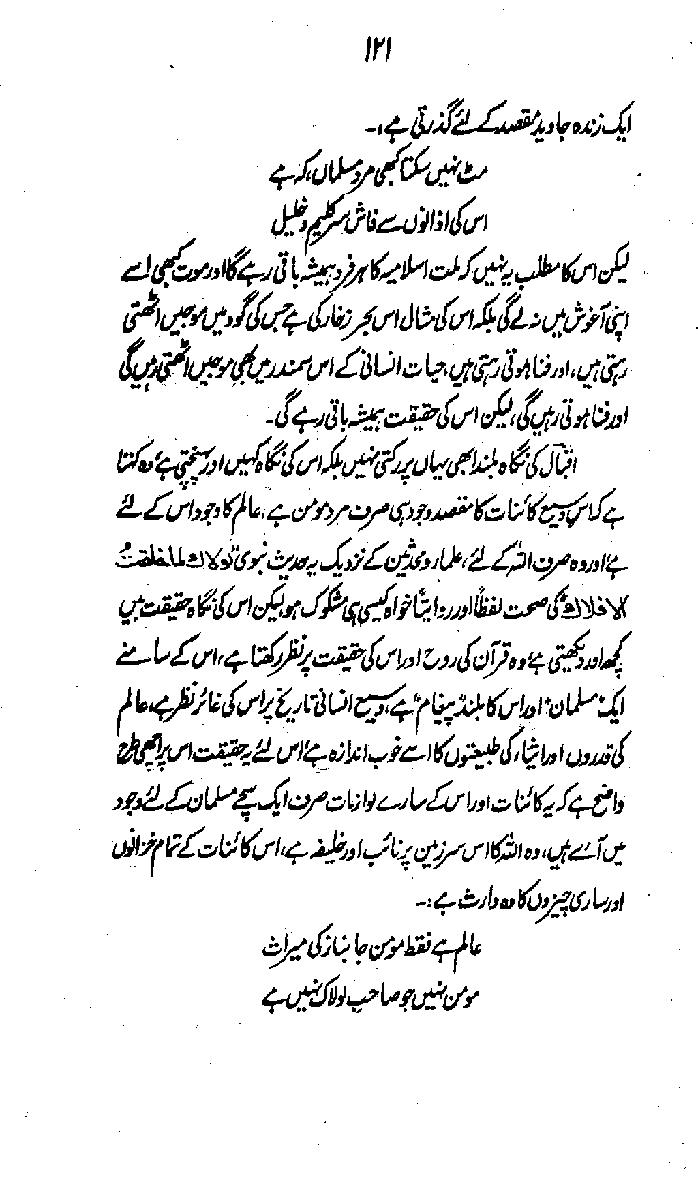 ۱۲۱
ایک زندہ جاوید مقصد کے لئے گذرتی ہے:۔
مٹ نہیں سکتا کبھی مرد مسلماں، کہ ہے
اس کی اذانوں سے فاش سر کلیم و خلیل
لیکن اس کا مطلب یہ نہیں کہ ملت اسلامیہ کا ہر فرد ہمیشہ باقی رہے گا اور موت کبھی اسے
اپنی آغوش میں نہ لے گی بلکہ اس کی مثال اس بحر زخار کی ہے جس کی گود میں موجیں اٹھتی
رہتی ہیں، اور فنا ہوتی رہتی ہیں، حیات انسانی کے اس سمندر میں بھی موجیں اٹھتی رہیں گی
اور فنا ہوتی رہیں گی، لیکن اس کی حقیقت ہمیشہ باقی رہے گی۔
اقبال کی نگاہ بلند ابھی یہاں پر رکتی نہیں بلکہ اس کی نگاہ کہیں اور پہنچتی ہے، وہ کہتا
ہے کہ اس وسیع کائنات کا مقصد وجود ہی صرف مرد مومن ہے، عالم کا وجود اس کے لئے
ہے اور وہ صرف اللہ کے لئے، علماء و محدثین کے نزدیک یہ حدیث نبوی "لولاک لما خلقت
الافلاک" کی صحت لفظاً اور روایتاً خواہ کیسی ہی مشکوک ہو لیکن اس کی نگاہ حقیقت میں
کچھ اور دیکھتی ہے، وہ قرآن کی روح اور اس کی حقیقت پر نظر رکھتا ہے، اس کے سامنے
ایک "مسلمان" اور اس کا بلند "پیغام" ہے، وسیع انسانی تاریخ پر اس کی غائر نظر ہے، عالم
کی قدروں اور اشیاء کی طبیعتوں کا اسے خوب اندازہ ہے، اس لئے یہ حقیقت اس پر اچھی طرح
واضح ہے کہ یہ کائنات اور اس کے سارے لوازمات صرف ایک سچے مسلمان کے لئے وجود
میں آئے ہیں، وہ اللہ کا اس سرزمین پر نائب اور خلیفہ ہے، اس کائنات کے تمام خزانوں
اور ساری چیزوں کا وہ وارث ہے:۔
عالم ہے فقط مومن جانباز کی میراث
مومن نہیں جو صاحب لولاک نہیں ہے